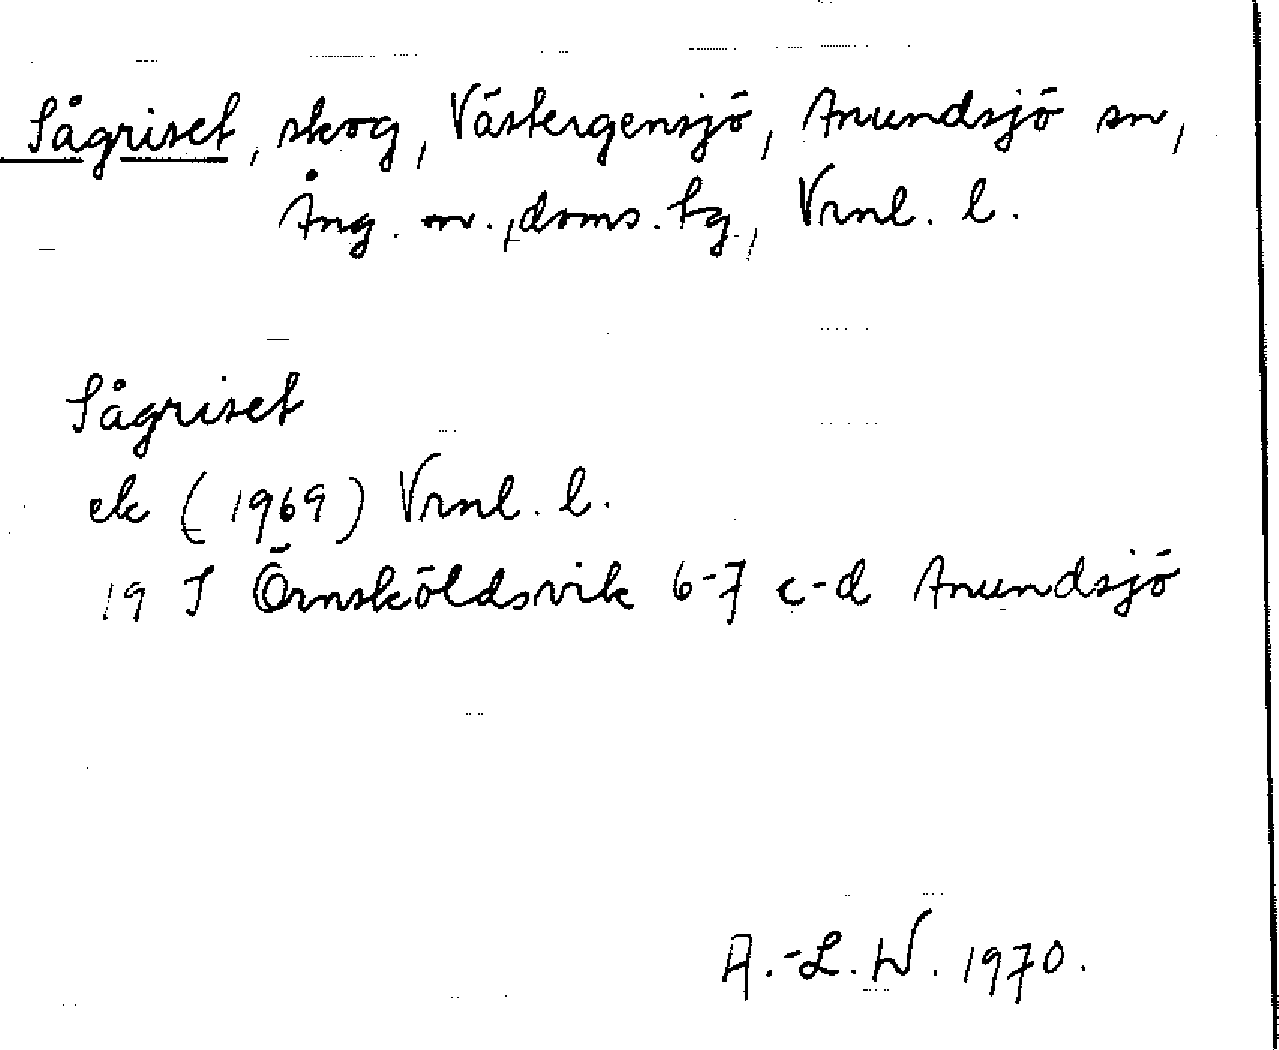 Sågriset, skog, Västergensjö, Anundsjö sn,
Ång. nv., doms. tg, Vrnl. l.
Sågriset
ek (1969) Vrnl. l.
19 I Örnsköldsvik 6-7 c-d Anundsjö
A.-L. W. 1970.